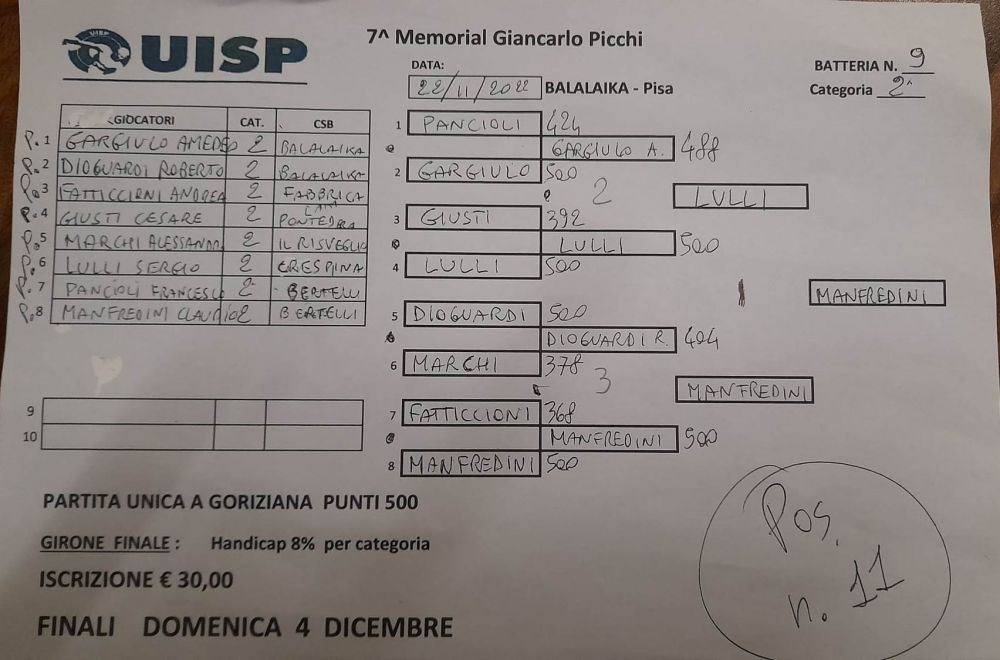 UISP
UISP
7^ Memorial Giancarlo Picchi
DATA:
22/11/2022
BALALAIKA - Pisa
BATTERIA N. 9
Categoria 2^
GIOCATORI CAT. CSB
P. 1 GARGIULO AMEDEO 2 BALALAIKA
P. 2 DIOGUARDI ROBERTO 2 BALALAIKA
P. 3 FATTICCIONI ANDREA 2 FABBRICA
P. 4 GIUSTI CESARE 2 PONTEDERA
P. 5 MARCHI ALESSANDRO 2 IL RISVEGLIO
P. 6 LULLI SERGIO 2 CRESPINA
P. 7 PANCIOLI FRANCESCO 2 BERTELLI
P. 8 MANFREDINI CLAUDIO 2 BERTELLI
9
10
1 PANCIOLI 424
GARGIULO A. 488
2 GARGIULO 500
2 LULLI
3 GIUSTI 392
LULLI 500
4 LULLI 500
1 MANFREDINI
5 DIOGUARDI 500
DIOGUARDI R. 404
6 MARCHI 378
3 MANFREDINI
7 FATTICCIONI 368
MANFREDINI 500
8 MANFREDINI 500
PARTITA UNICA A GORIZIANA PUNTI 500
GIRONE FINALE : Handicap 8% per categoria
ISCRIZIONE € 30,00
FINALI DOMENICA 4 DICEMBRE
Pos.
n. 11